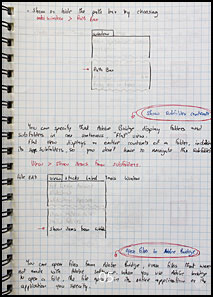 • Show or hide the path bar by choosing
window > Path Bar
window
Path Bar
Show Subfolder contents
You can specify that Adobe Bridge display folders and
subfolders in one continuous "Flat" view.
Flat view displays an entire contents of a folder, including
its subfolders, so you don't have to navigate the subfolders
View > Show items from subfolders.
File Edit View Stacks Label Tools Window
Show items from subfo
Open files in Adobe Bridge
You can open files from Adobe Bridge, even files that were
not made with Adobe software. When you use Adobe Bridge
to open a file, the file opens in its native application or the
application you specify.